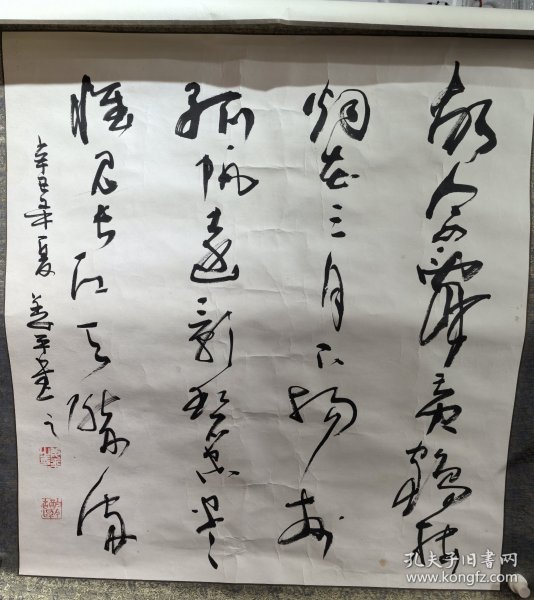 故人西辞黄鶴楼
烟花三月下揚州
孤帆遠影碧空尽
惟見長江天際流
辛丑季夏 平書之
孔夫子旧书网
www.kongfz.com